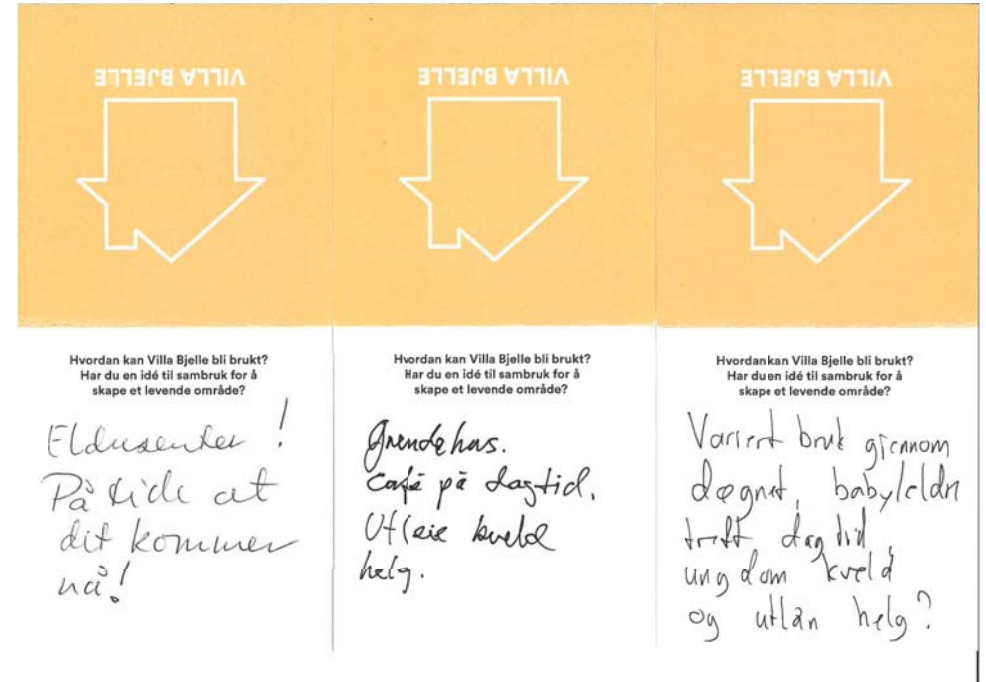 VILLA BJELLE
Hvordan kan Villa Bjelle bli brukt?
Har du en idé til sambruk for å
skape et levende område?
Eldresenter!
På tide at
dit kommer
nå!
VILLA BJELLE
Hvordan kan Villa Bjelle bli brukt?
Har du en idé til sambruk for å
skape et levende område?
Grendehus.
Café på dagtid.
Utleie kveld
helg.
VILLA BJELLE
Hvordan kan Villa Bjelle bli brukt?
Har du en idé til sambruk for å
skape et levende område?
Variert bruk gjennom
døgnet, baby/eldre
treff dagtid,
ungdom kveld
og utlån helg?